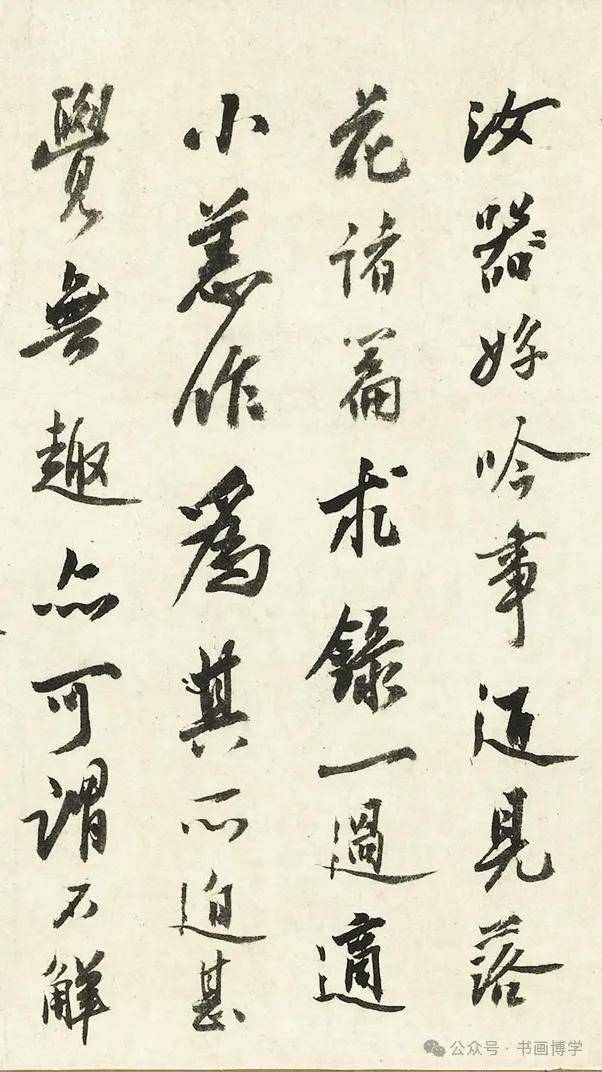 汝器好吟事迺見落
花諸篇求錄一過適
小恙作為其所迫甚
覺無趣亦可謂不解
公众号·书画博学